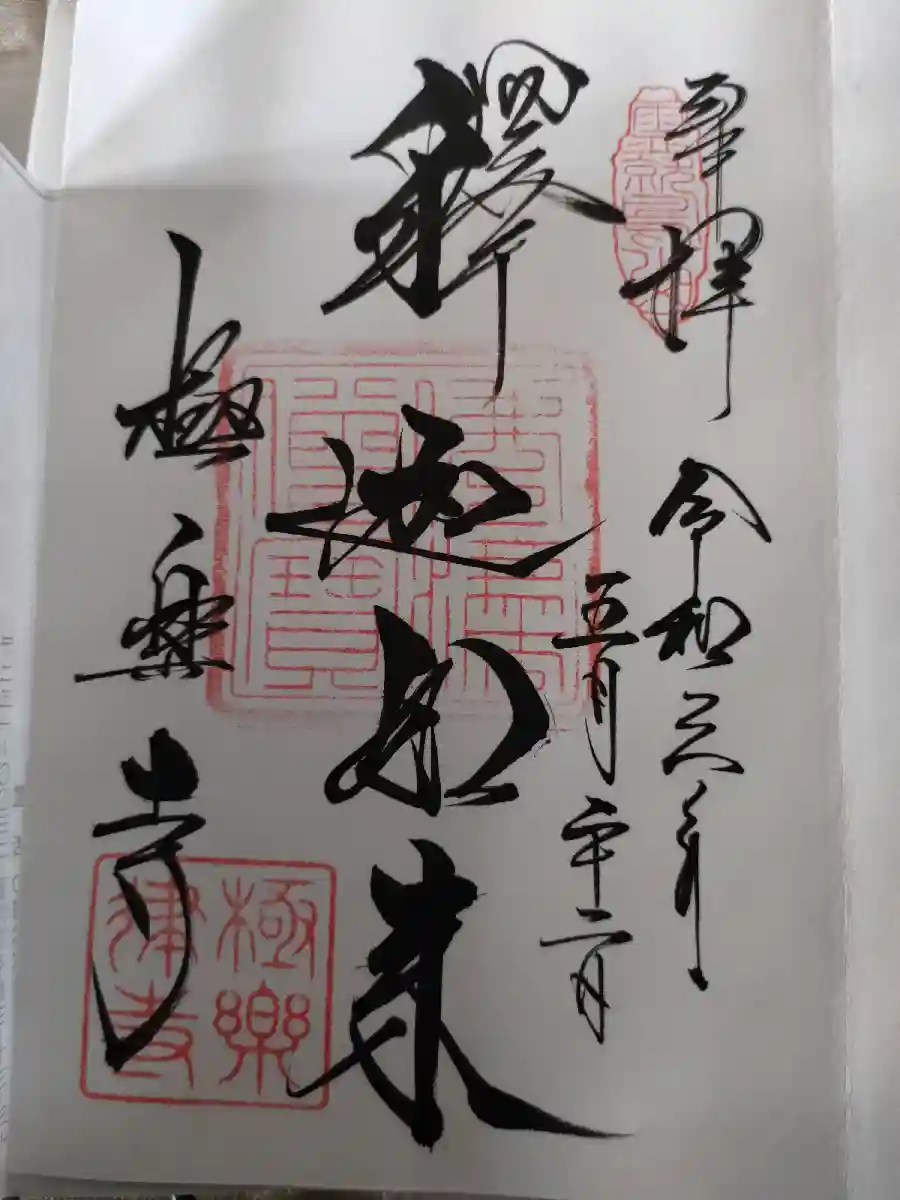 奉拝
令和六年
五月二十二日
釋迦如来
極楽寺
極樂
律寺